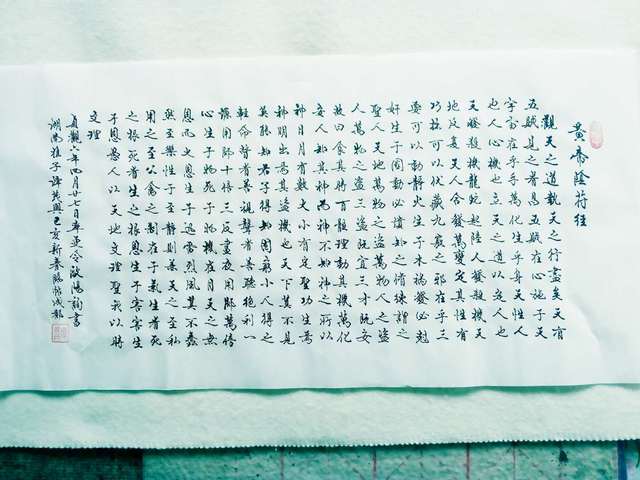 黃帝陰符經
觀天之道執天之行盡矣天有
五賊見之者昌五賊在心施于天
宇宙在乎手萬化生乎身天性人
也人心機也立天之道以定人也
天發殺機龍蛇起陸人發殺機天
地反覆天人合發萬變定其性有
巧拙可以伏藏九竅之邪在乎三
要可以動靜火生于木禍發必剋
奸生于國動必潰知之脩練謂之
聖人天地萬物之盜萬物人之盜
人萬物之盜三盜既宜三才既安
故曰食其時百骸理動其機萬化
安人知其神而神不知神之所以
神日月有數大小有定聖功生焉
神明出焉其盜機也天下莫不見
莫能知君子得之固窮小人得之
輕命聾者善視瞽者善聽絕利一
源用師十倍三反晝夜用師萬倍
心生于物死于物機在目天之無
恩而大恩生于迅雷烈風莫不蠢
然至樂性于至靜則廉天之至私
用之至公禽之制在于氣生者死
之根死者生之根恩生于害害生
于恩愚人以天地文理聖我以時
文理
貞觀六年四月廿七日率更令歐陽詢書
湖南雅子譚己亥新春臨帖